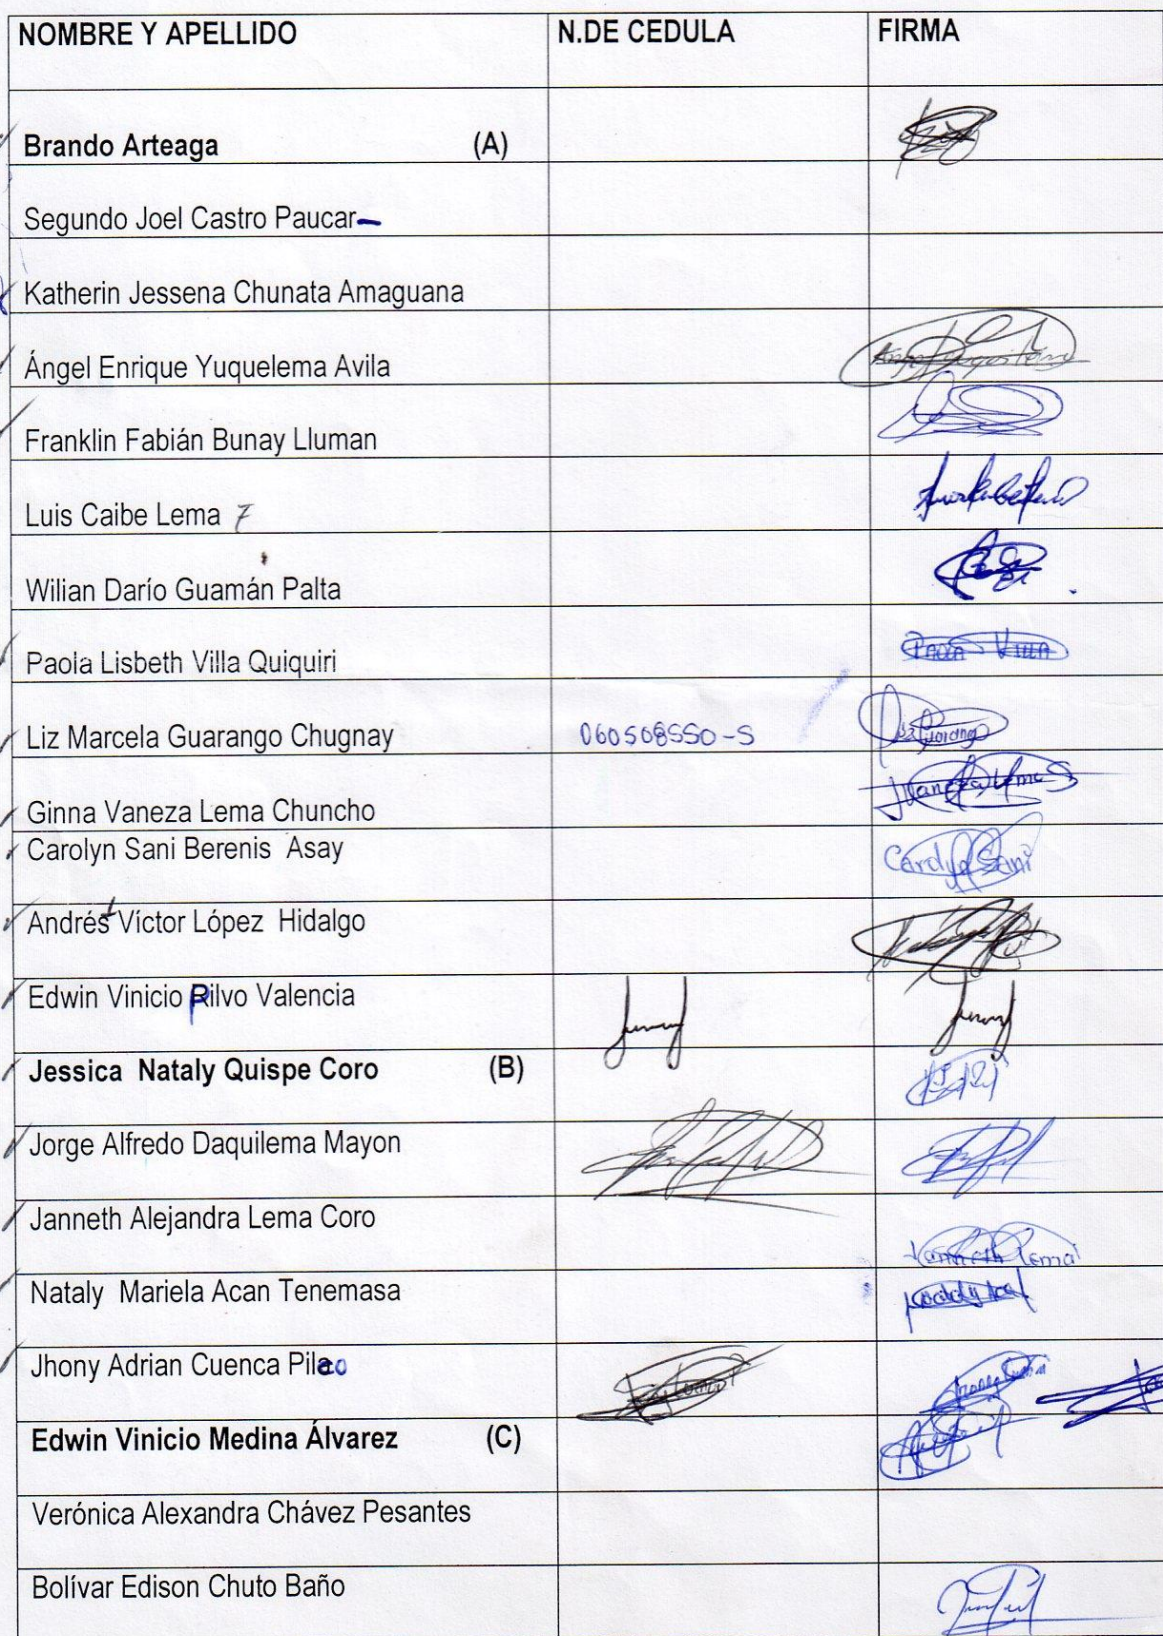 NOMBRE Y APELLIDO N.DE CEDULA FIRMA
Brando Arteaga (A)
Segundo Joel Castro Paucar
Katherin Jessena Chunata Amaguana
Ángel Enrique Yuquelema Avila
Franklin Fabián Bunay Lluman
Luis Caibe Lema F
Wilian Darío Guamán Palta
Paola Lisbeth Villa Quiquiri Paola Villa
Liz Marcela Guarango Chugnay 060508550-5
Ginna Vaneza Lema Chuncho
Carolyn Sani Berenis Asay Carolyn Sani
Andrés Víctor López Hidalgo
Edwin Vinicio Pilvo Valencia
Jessica Nataly Quispe Coro (B)
Jorge Alfredo Daquilema Mayon
Janneth Alejandra Lema Coro Janneth Lema
Nataly Mariela Acan Tenemasa
Jhony Adrian Cuenca Pilco
Edwin Vinicio Medina Álvarez (C)
Verónica Alexandra Chávez Pesantes
Bolívar Edison Chuto Baño